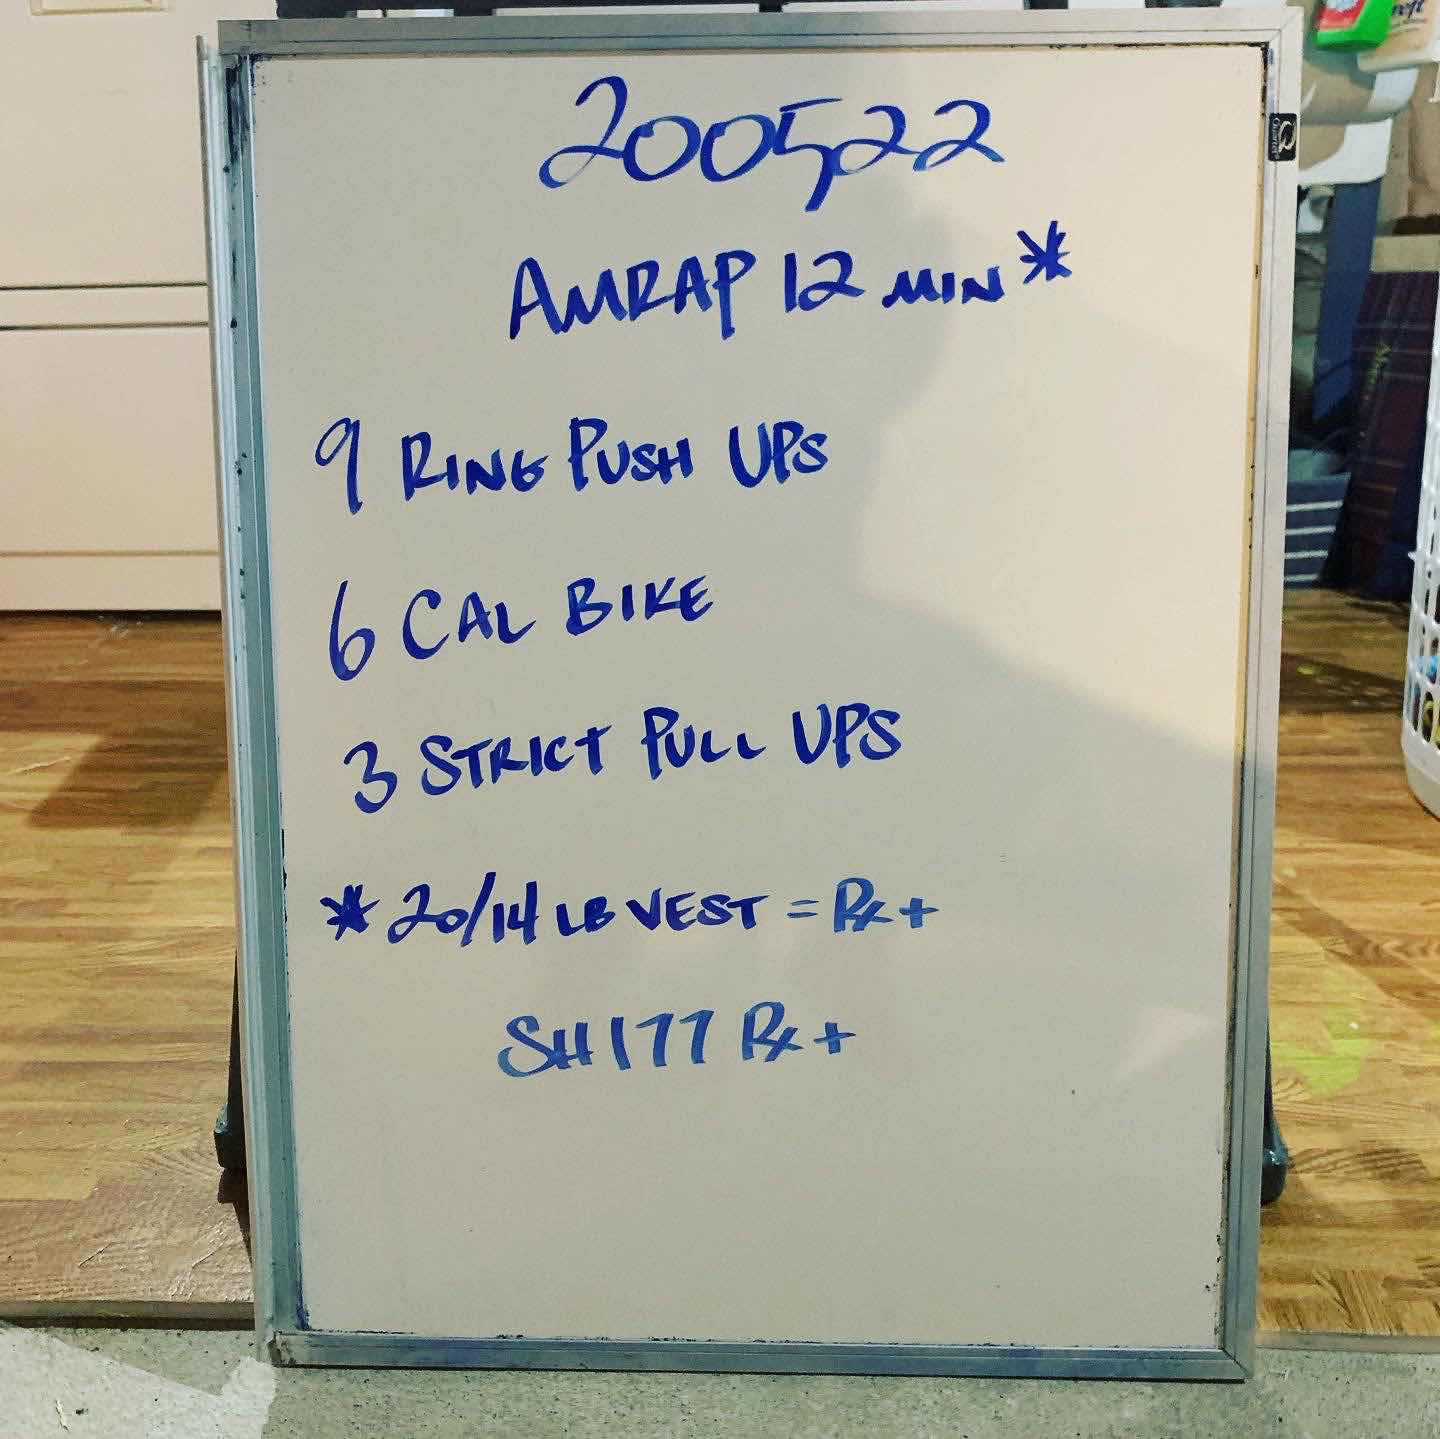 200522
AMRAP 12 MIN*
9 RING PUSH UPS
6 CAL BIKE
3 STRICT PULL UPS
* 20/14 LB VEST = Rx+
SH 177 Rx+
Quartet